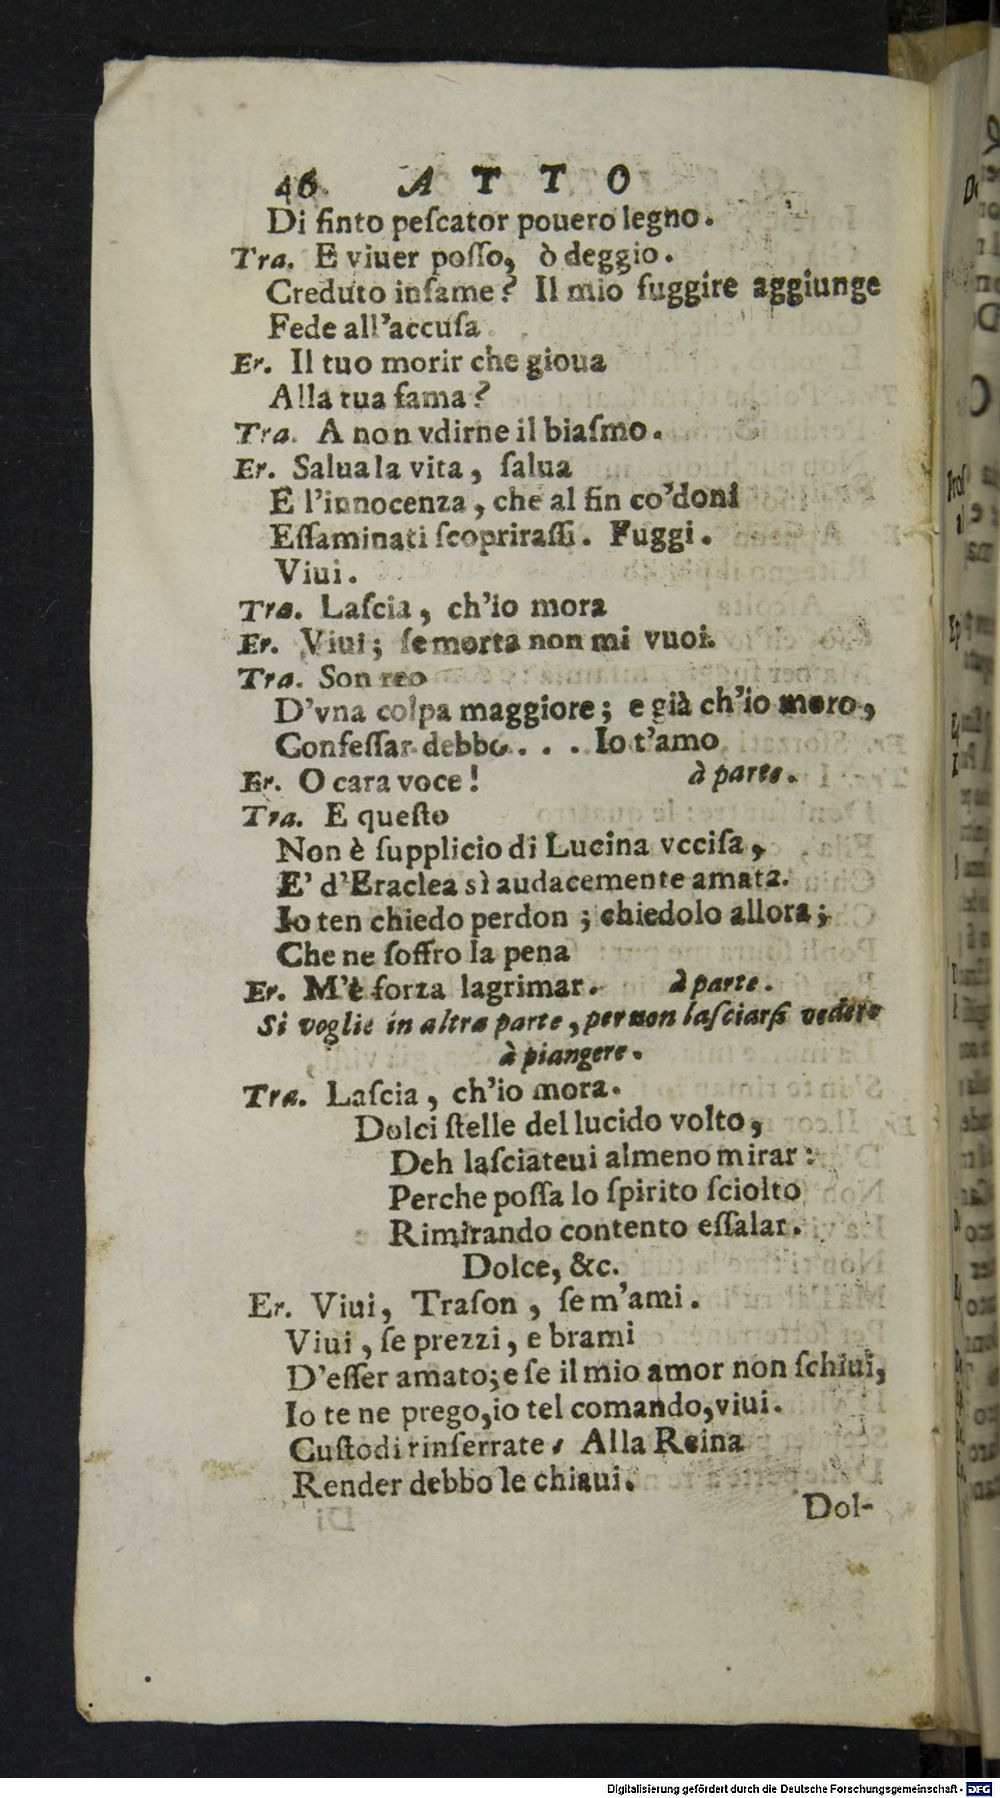 46. ATTO
Di finto peſcator pouero legno.
Tra. E viuer poſſo, ò deggio.
Creduto infame? Il mio fuggire aggiunge
Fede all'accuſa
Er. Il tuo morir che gioua
Alla tua fama?
Tra. A non vdirne il biaſmo.
Er. Salua la vita, ſalua
E l'innocenza, che al fin co'doni
Eſſaminati ſcopriraſſi. Fuggi.
Viui.
Tra. Laſcia, ch'io mora
Er. Viui; ſe morta non mi vuoi.
Tra. Son reo
D'vna colpa maggiore; e già ch'io moro,
Confeſſar debbo... Io t'amo
Er. O cara voce! à parte.
Tra. E queſto
Non è ſupplicio di Lucina vcciſa,
E' d'Eraclea sì audacemente amata.
Io ten chiedo perdon; chiedolo allora;
Che ne ſoffro la pena
Er. M'è forza lagrimar. à parte.
Si voglie in altra parte, per non laſciarſi vedere
à piangere.
Tra. Laſcia, ch'io mora.
Dolci ſtelle del lucido volto,
Deh laſciateui almeno mirar:
Perche poſſa lo ſpirito ſciolto
Rimirando contento eſſalar.
Dolce, &c.
Er. Viui, Traſon, ſe m'ami.
Viui, ſe prezzi, e brami
D'eſſer amato; e ſe il mio amor non ſchiui,
Io te ne prego, io tel comando, viui.
Cuſtodi rinſerrate. Alla Reina
Render debbo le chiaui.
Dol-
Digitalisierung gefördert durch die Deutsche Forschungsgemeinschaft - DFG